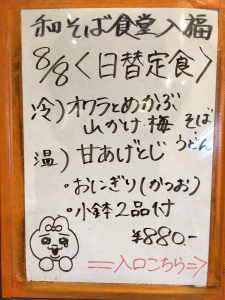 和そば食堂入福
8/8〈日替定食〉
冷）オクラとめかぶ
山かけ 梅 そば
うどん
温）甘あげとじ
・おにぎり(かつお)
・小鉢2品付
¥880.-
⇒入口こちら⇒